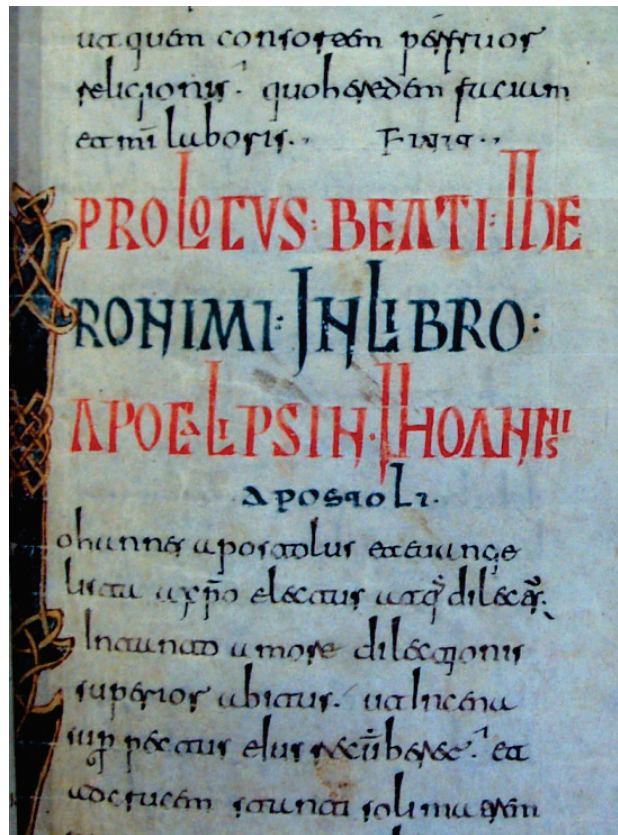 ut quem consortem perfruor
religionis. quoheredem faciam
et mi laboris. Finis.
PROLOGUS: BEATI: IHE
RONIMI: IN LIBRO:
APOCALIPSIN. IHOANNIS
APOSTOLI.
ohannes apostolus et evange
lista a xpo electus atq dilectus.
In tanto amore dilectionis
superior abitus. ut In cena
sup pectus eius recumberet. et
ad crucem stanti soli matrem